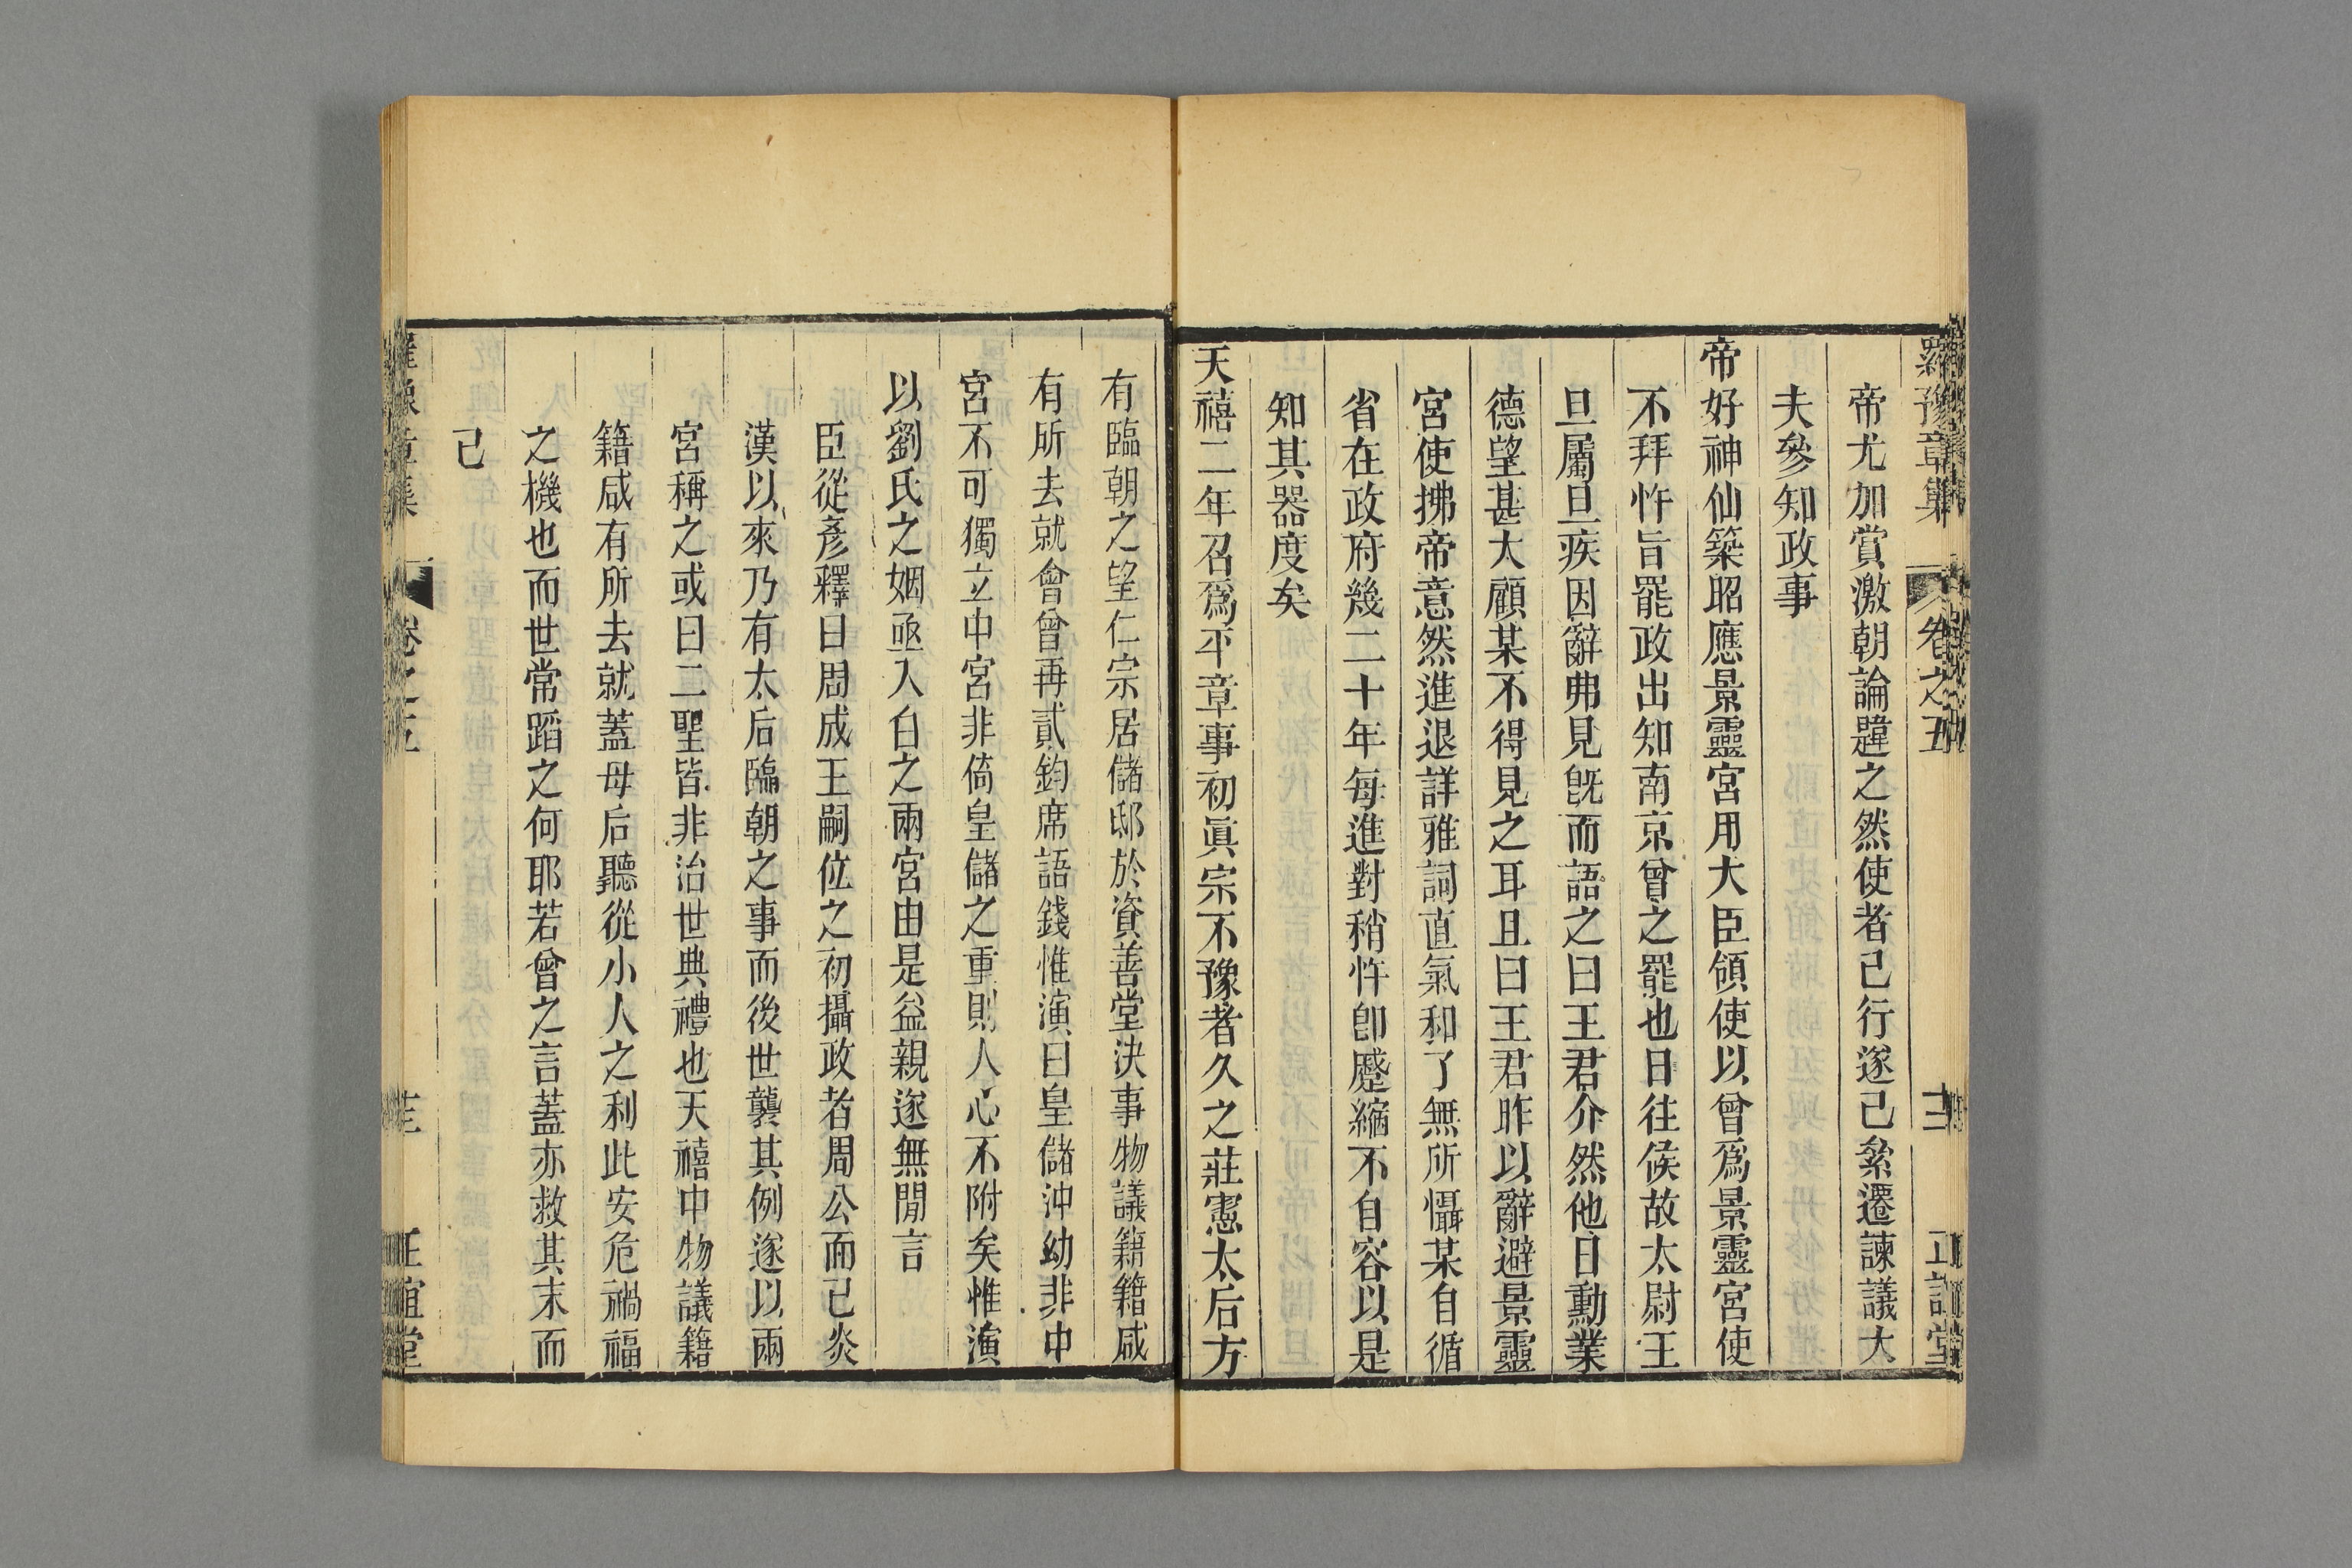 羅豫章集 卷之五 十二 正誼堂
帝尤加賞激朝論韙之然使者已行遂已絫遷諫議大
夫參知政事
帝好神仙築昭應景靈宮用大臣領使以曾爲景靈宮使
不拜忤旨罷政出知南京曾之罷也日往候故太尉王
旦屬旦疾因辭弗見旣而語之曰王君介然他日勳業
德望甚大顧某不得見之耳且曰王君昨以辭避景靈
宮使拂帝意然進退詳雅詞直氣和了無所懾某自循
省在政府幾二十年每進對稍忤卽蹙縮不自容以是
知其器度矣
天禧二年召爲平章事初眞宗不豫者久之莊憲太后方
有臨朝之望仁宗居儲邸於資善堂決事物議籍籍咸
有所去就會曾再貳鈞席語錢惟演曰皇儲沖幼非中
宮不可獨立中宮非倚皇儲之重則人心不附矣惟演
以劉氏之姻亟入白之兩宮由是益親遂無閒言
臣從彥釋曰周成王嗣位之初攝政者周公而已炎
漢以來乃有太后臨朝之事而後世襲其例遂以兩
宮稱之或曰二聖皆非治世典禮也天禧中物議籍
籍咸有所去就蓋母后聽從小人之利此安危禍福
之機也而世常蹈之何耶若曾之言蓋亦救其末而
已
章集 卷之五 正誼堂